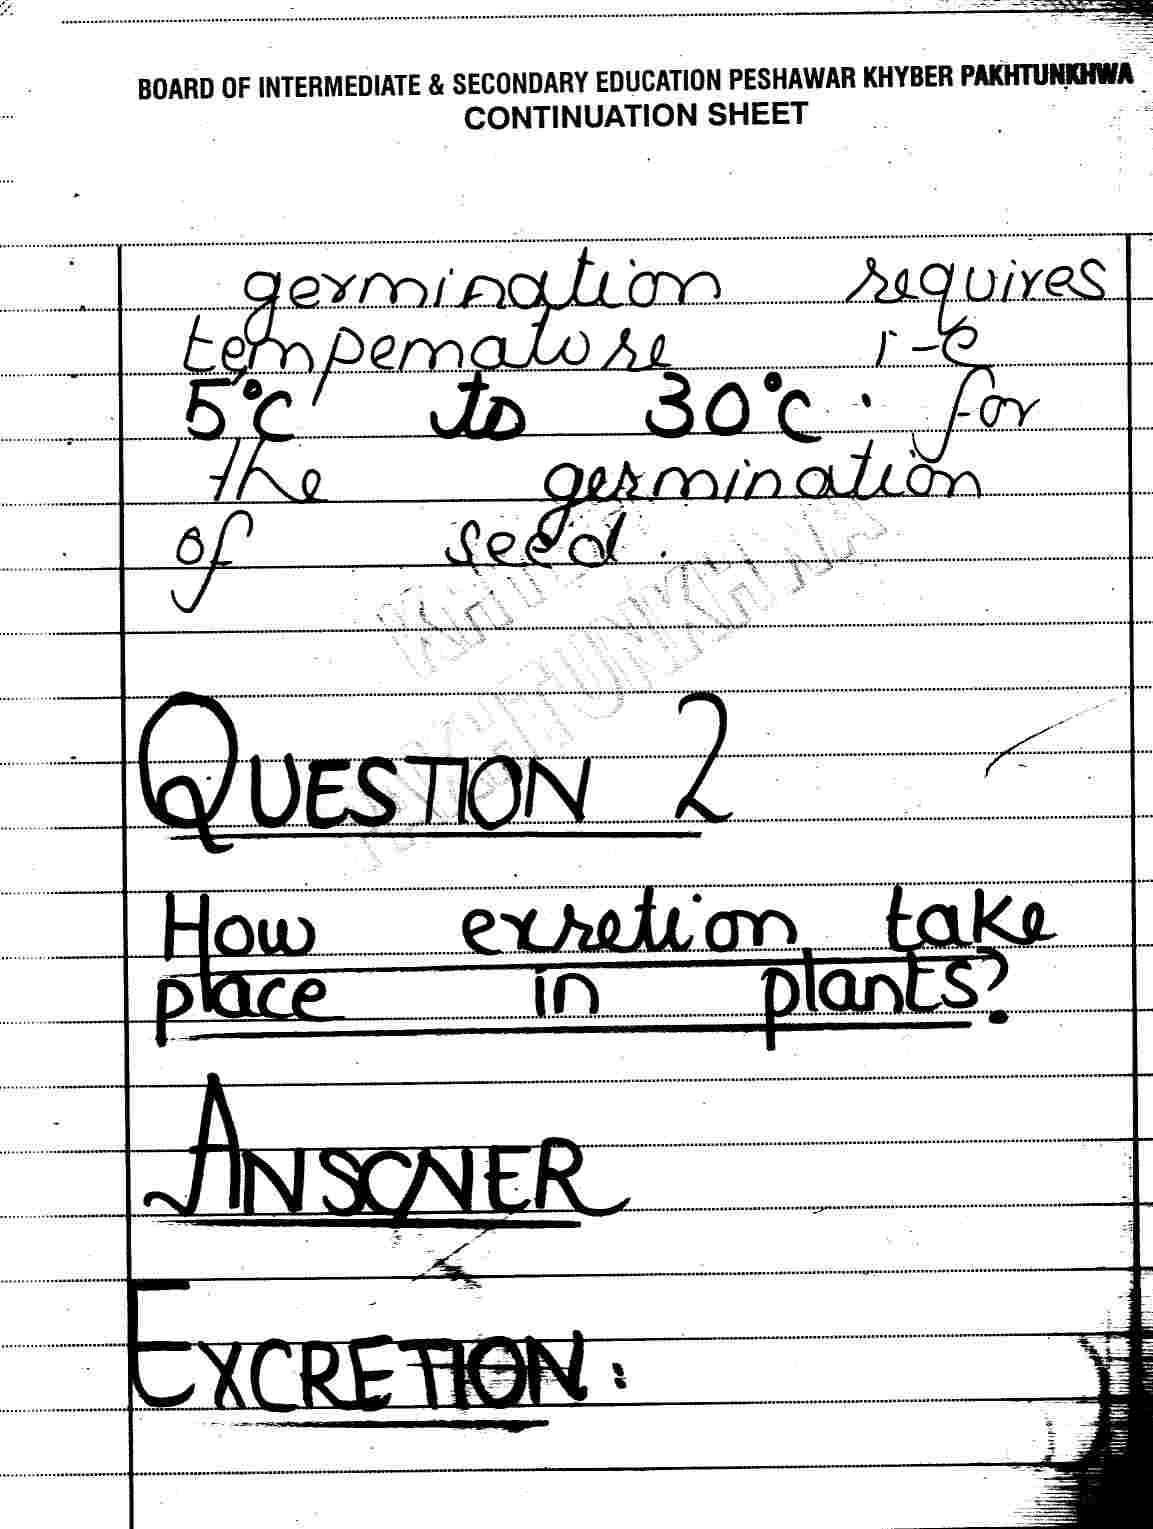 BOARD OF INTERMEDIATE & SECONDARY EDUCATION PESHAWAR KHYBER PAKHTUNKHWA
CONTINUATION SHEET
germination requires
tempemature i-e
5°C to 30°C. for
the germination
of seed.
QUESTION 2
How exretion take
place in plants?
ANSWER
EXCRETION: